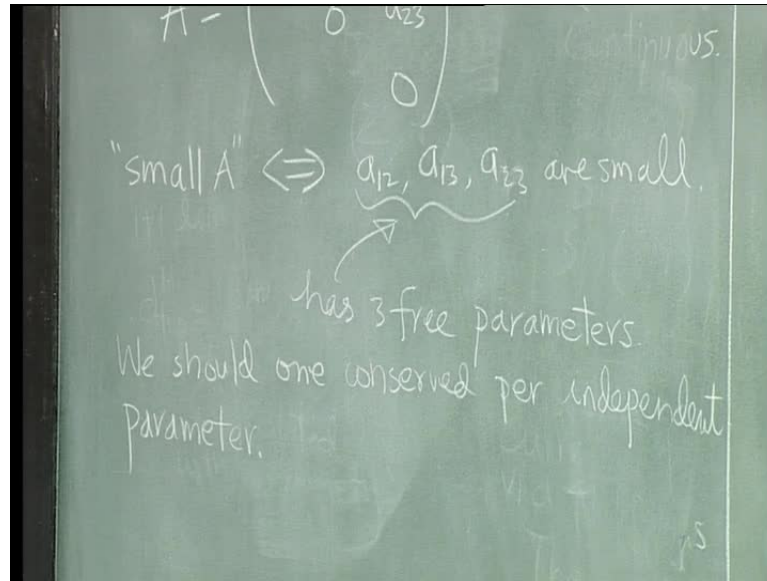 A = ( 0 a23
0 )
Continuous.
"small A" <=> a12, a13, a23 are small.
has 3 free parameters.
We should one conserved per independent
parameter.